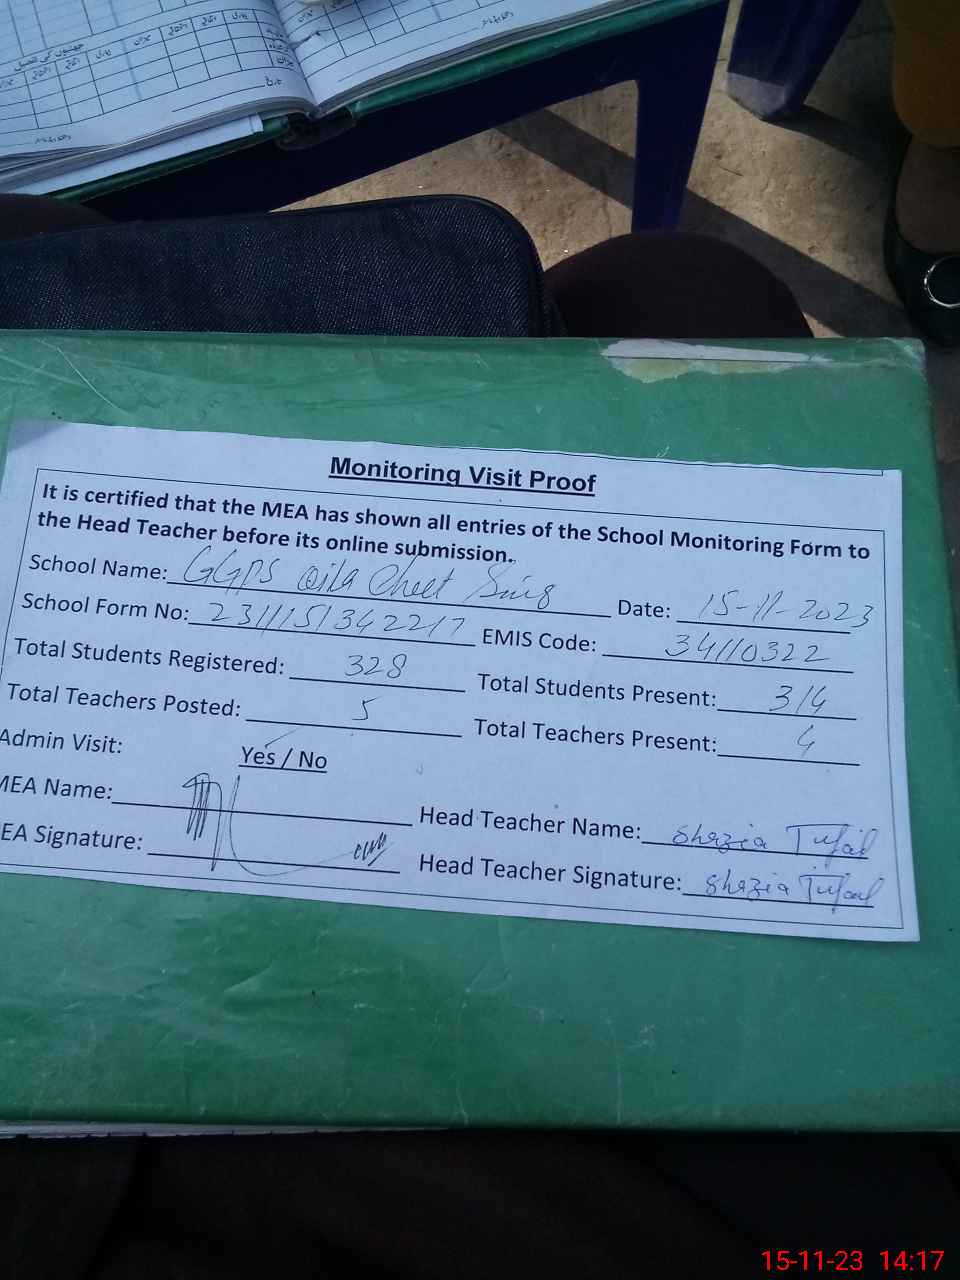 Monitoring Visit Proof
It is certified that the MEA has shown all entries of the School Monitoring Form to
the Head Teacher before its online submission.
School Name: GGPS Qila Cheet Sing Date: 15-11-2023
School Form No: EMIS Code: 34110322
Total Students Registered: 328 Total Students Present: 314
Total Teachers Posted: 5 Total Teachers Present: 4
Admin Visit: Yes / No
MEA Name: Head Teacher Name: Shazia Tufail
EA Signature: Head Teacher Signature: Shazia Tufail
15-11-23 14:17